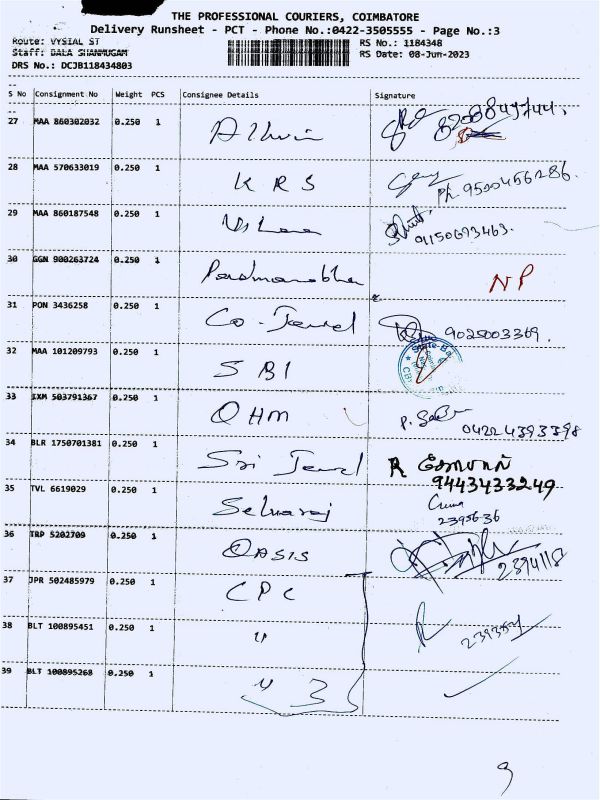 THE PROFESSIONAL COURIERS, COIMBATORE
Delivery Runsheet - PCT - Phone No.:0422-3505555 - Page No.:3
Route: VYSIAL ST RS No.: 1184348
Staff: BALA SHANMUGAM RS Date: 08-Jun-2023
DRS No.: DCJB118434803
S No Consignment No Weight PCS Consignee Details Signature
27 MAA 860302032 0.250 1
28 MAA 570633019 0.250 1 KRS Ph. 9500456286.
29 MAA 860187548 0.250 1 9150673463.
30 GGN 900263724 0.250 1 Padmanabha NP
31 PON 3436258 0.250 1 Co-Jewel 9025003369.
32 MAA 101209793 0.250 1 SBI
33 IXM 503791367 0.250 1 OHM 04224393398
34 BLR 1750701381 0.250 1 Sri Jewel R கோபால்
9443433249
35 TVL 6619029 0.250 1 Selvaraj
2395636
36 TRP 5202709 0.250 1 OASIS 2394118
37 JPR 502485979 0.250 1 CPC
38 BLT 100895451 0.250 1 "
39 BLT 100895268 0.250 1 " 3
9